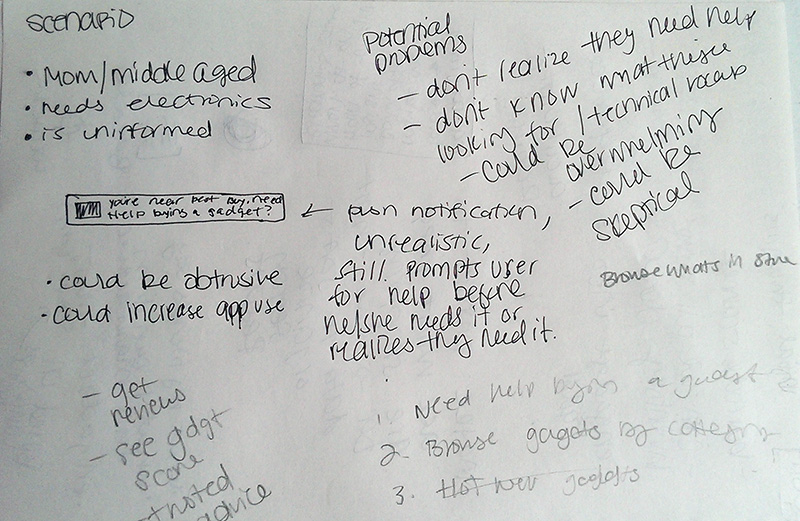 scenario
• Mom/middle aged
• needs electronics
• is uninformed
Potential
problems
- don't realize they need help
- don't know what
looking for / technical vocab
- could be
overwhelming
- could be
skeptical
you're near best buy, need
help buying a gadget?
← push notification,
unrealistic,
still prompts user
for help before
he/she needs it or
realizes they need it.
• could be obtrusive
• could increase app use
Browse whats in store
- get
reviews
- see gdgt
score
advice
1. Need help buying a gadget
2. Browse gagets by category
3. Hot new gadgets